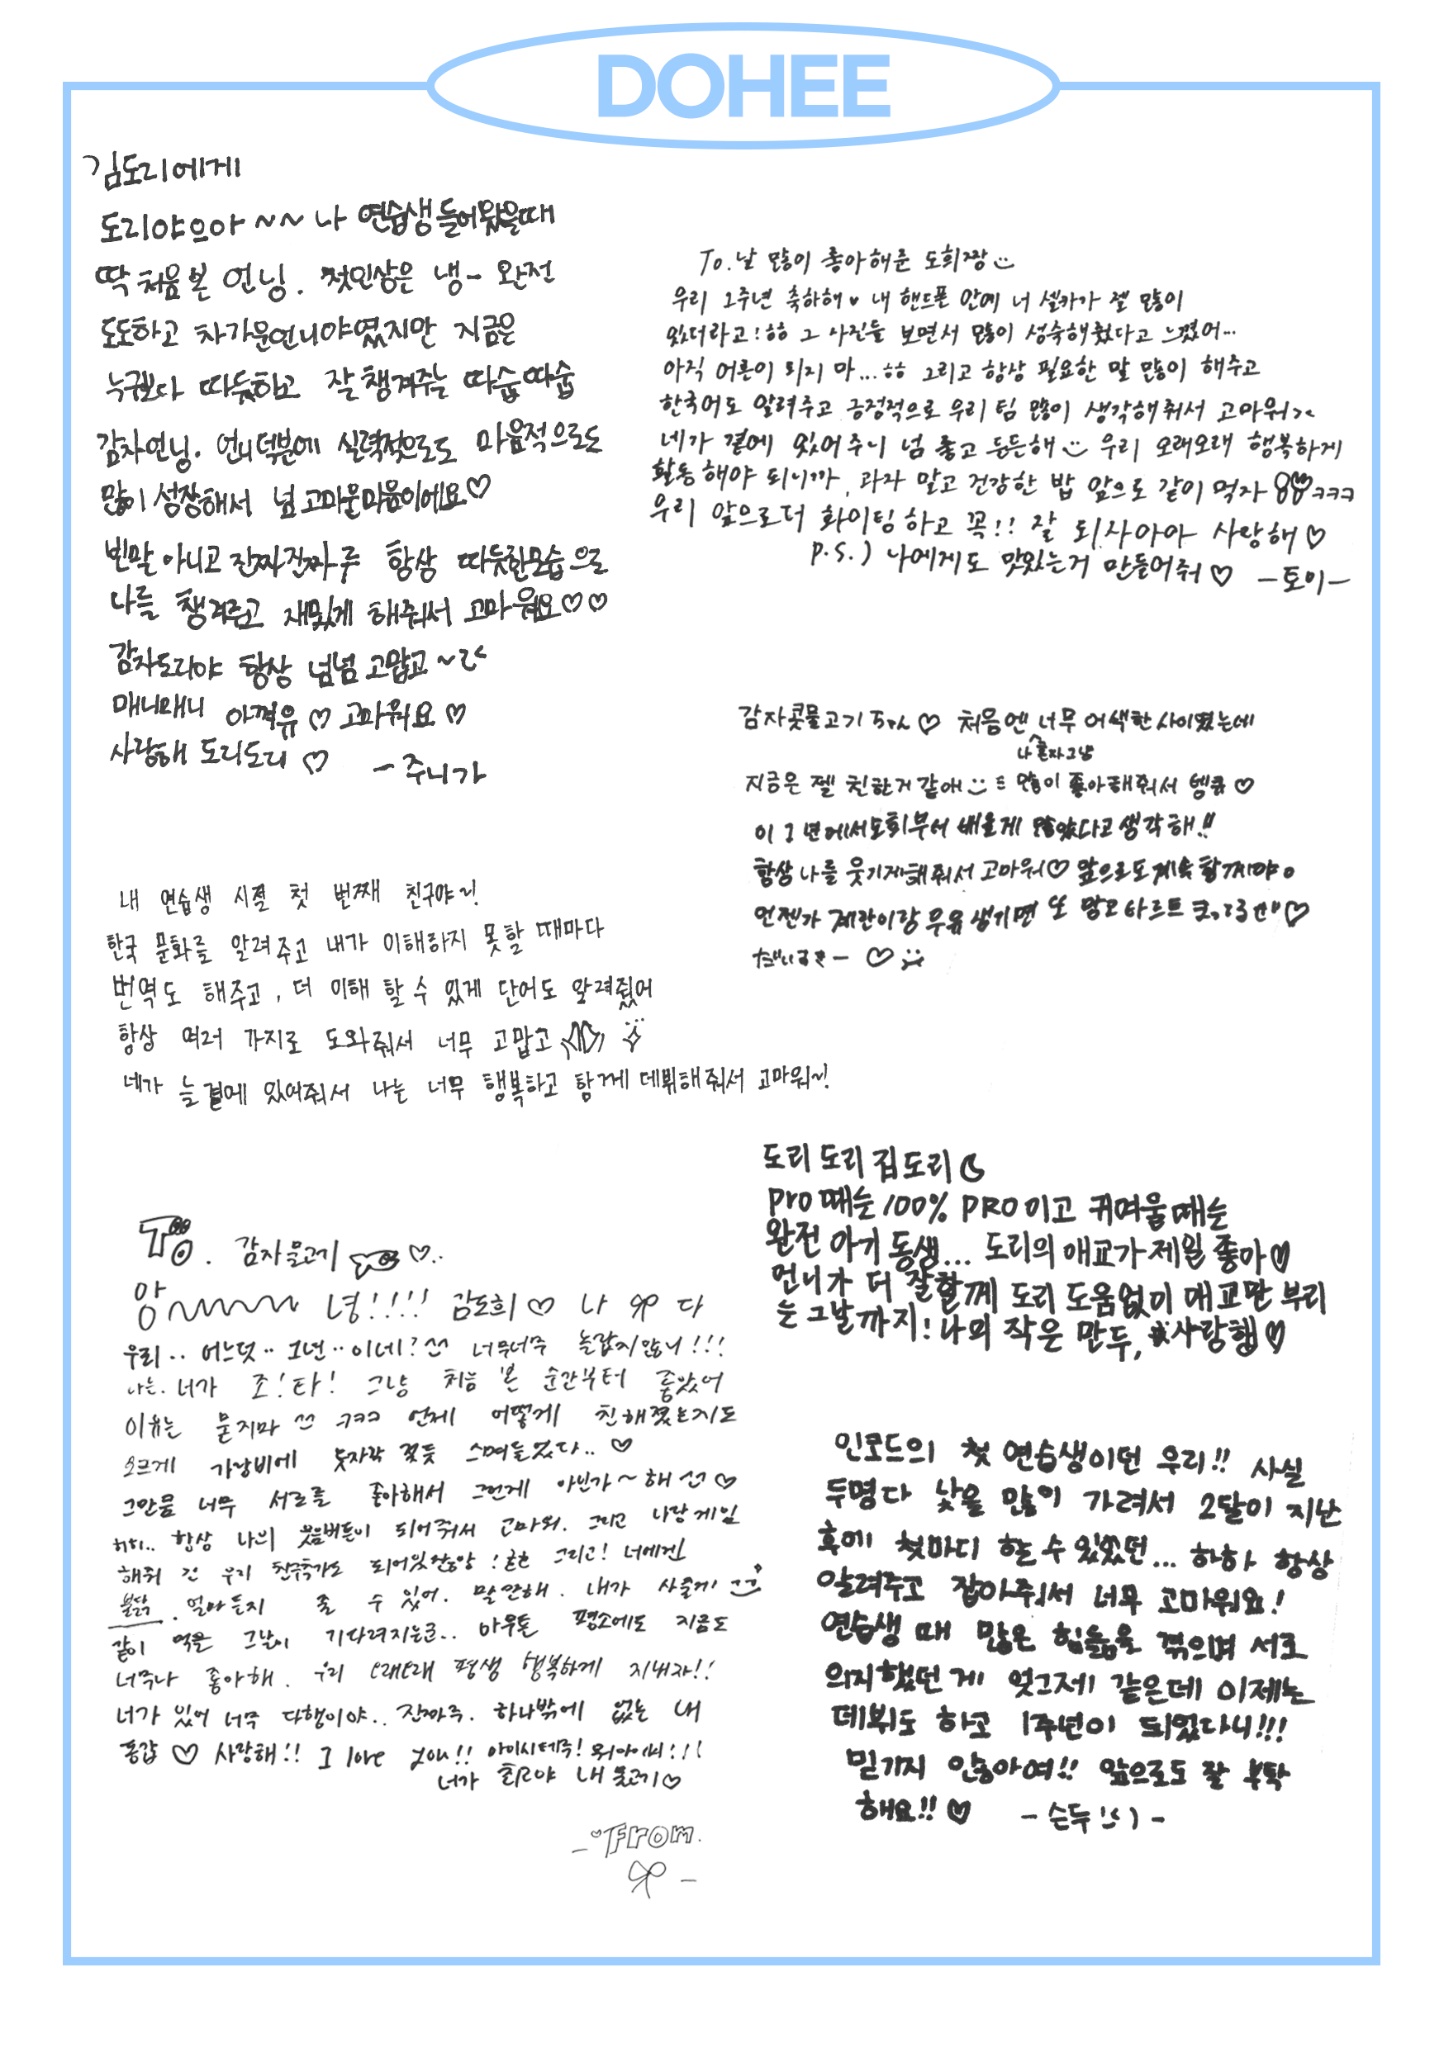 DOHEE
김도리에게
도리야으아~~ 나 연습생 들어왔을때
딱 처음 본 언닝. 첫인상은 냉- 완전
도도하고 차가운언니야였지만 지금은
누궈보다 따듯하고 잘 챙겨주는 따숩따숩
감자언닝. 언니덕분에 실력적으로도 마음적으로도
많이 성장해서 넘 고마운마음이에요♡
빈말 아니고 진짜진짜루 항상 따듯한모습으로
나를 챙겨주고 재밌게 해줘서 고마워요♡♡
감자도리야 항상 넘넘 고맙고~
매니매니 아껴유♡ 고마워요♡
사랑해 도리도리♡ -주니가
To. 날 많이 좋아해준 도희짱
우리 1주년 축하해♥ 내 핸드폰 안에 너 셀카가 젤 많이
있더라고!ㅎㅎ 그 사진들 보면서 많이 성숙해졌다고 느꼈어...
아직 어른이 되지 마...ㅎㅎ 그리고 항상 필요한 말 많이 해주고
한국어도 알려주고 긍정적으로 우리 팀 많이 생각해줘서 고마워><
네가 곁에 있어주니 넘 좋고 든든해 우리 오래오래 행복하게
활동해야 되니까, 과자 말고 건강한 밥 앞으로 같이 먹자 ㅋㅋㅋ
우리 앞으로더 화이팅 하고 꼭!! 잘 되사아아 사랑해♡
p.s.) 나에게도 맛있는거 만들어줘♡ -토이-
감자콧물고기ちゃん♡ 처음엔 너무 어색한 사이였는데
나 혼자그냥
지금은 젤 친한거 같애 많이 좋아해줘서 땡큐♡
이 1년에서 도희부서 배울게 많았다고 생각해!!
항상 나를 웃기게해줘서 고마워♡ 앞으로도 계속 함께야。
언젠가 계란이랑 우유 생기면 또 망모 타르트 つくるせ♡
だいすきー♡
내 연습생 시절 첫 번째 친구야~!
한국 문화를 알려주고 내가 이해하지 못할 때마다
번역도 해주고, 더 이해 할 수 있게 단어도 알려줬어
항상 여러 가지로 도와줘서 너무 고맙고
네가 늘 곁에 있어줘서 나는 너무 행복하고 함께 데뷔해줘서 고마워~!
도리도리김도리
pro때는 100% PRO이고 귀여울때는
완전 아기 동생... 도리의 애교가 제일 좋아♡
언니가 더 잘할께 도리 도움없이 애교만 부리
는 그날까지! 나의 작은 만두, 사랑행♡
To. 감자물고기 ♡..
앙~ 녕!!!! 김도희♡ 나 다
우리.. 어느덧.. 1년.. 이네? 너무너무 놀랍지않니!!!
나는. 너가 조!타! 그냥 처음 본 순간부터 좋았어
이유는 묻지마 ㅋㅋㅋ 언제 어떻게 친해졌는지도
모르게 가랑비에 옷자락 젖듯 스며들었다..♡
그만큼 너무 서로를 좋아해서 그런게 아닌가~해 ♡
히히.. 항상 나의 웃음버튼이 되어줘서 고마워. 그리고 나랑게임
해줘 그리고! 너에겐
불닭. 얼마든지 줄 수 있어. 말만해. 내가 사줄게
같이 먹을 그날이 기다려지는군.. 아무튼 평소에도 지금도
너무나 좋아해. 우리 오래오래 평생 행복하게 지내자!!
너가 있어 너무 다행이야.. 진짜루. 하나밖에 없는 내
동갑♡ 사랑해!! I love you!! 아이시테루! 워아이니!!!
너가 최고야 내 물고기♡
-♡From.
-
인코드의 첫 연습생이던 우리!! 사실
두명다 낯을 많이 가려서 2달이 지난
후에 첫마디 할 수 있었던... 하하 항상
알려주고 잡아줘서 너무 고마워요!
연습생 때 많은 힘듦을 겪으며 서로
의지했던 게 엊그제 같은데 이제는
데뷔도 하고 1주년이 되었다니!!!
믿기지 안숭아여!! 앞으로도 잘 부탁
해요!!♡ -순두-